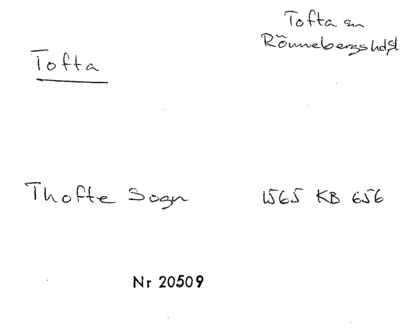 Tofta
Tofta sn
Rönnebergs hd,
Thofte Sogn
1565 KB 656
Nr 20509